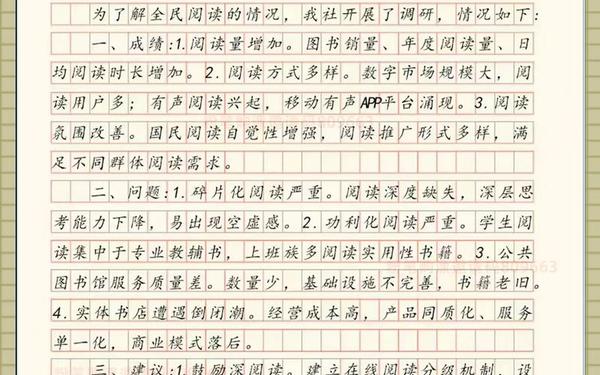 为了解全民阅读的情况，我社开展了调研，情况如下：
一、成绩：1.阅读量增加。图书销量、年度阅读量、日
均阅读时长增加。2.阅读方式多样。数字市场规模大，阅
读用户多；有声阅读兴起，移动有声APP平台涌现。3.阅读
氛围改善。国民阅读自觉性增强，阅读推广形式多样，满
足不同群体阅读需求。
二、问题：1.碎片化阅读严重。阅读深度缺失，深层思
考能力下降，易出现空虚感。2.功利化阅读严重。学生阅
读集中于专业教辅书，上班族多阅读实用性书籍。3.公共
图书馆服务质量差。数量少，基础设施不完善，书籍老旧。
4.实体书店遭遇倒闭潮。经营成本高，产品同质化、服务
单一化，商业模式落后。
三、建议：1.鼓励深阅读。建立在线阅读分级机制，设